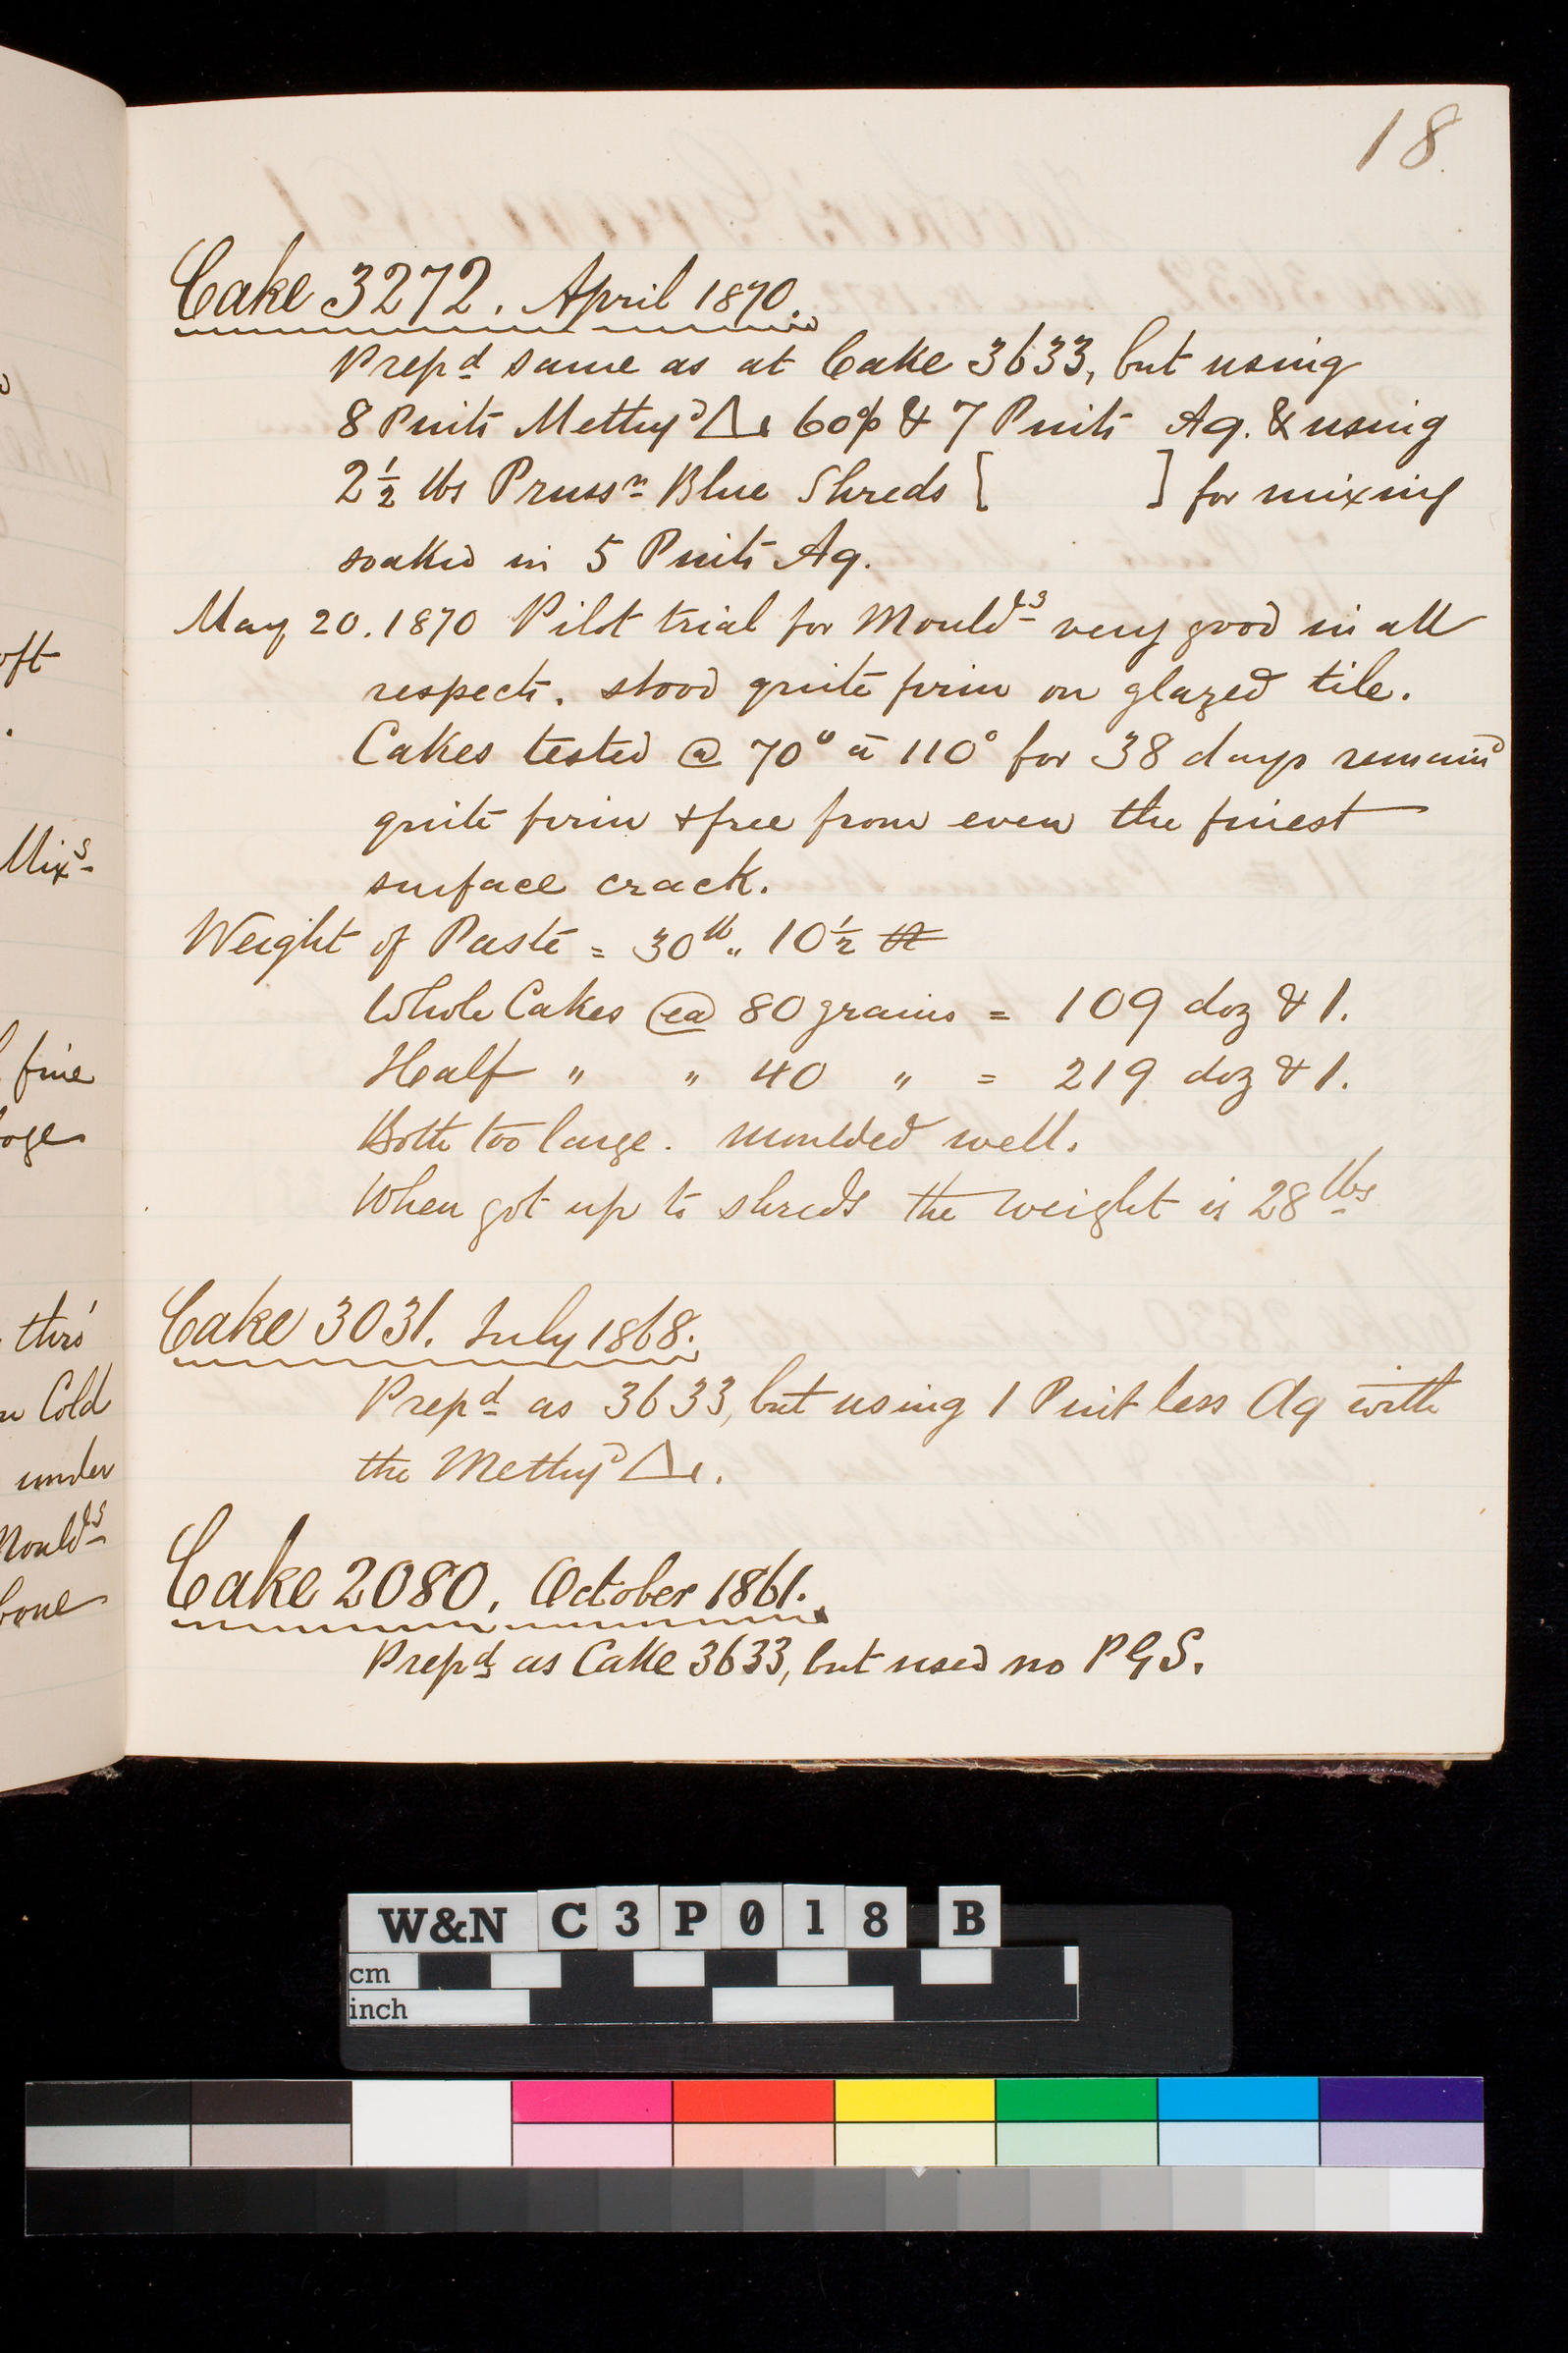 18.
Cake 3272. April 1870.
Prepd same as at Cake 3633, but using
8 Pints Methyd 60% & 7 Pints Aq. & using
2½ lbs Prussn Blue Shreds [ ] for mixing
soaked in 5 Pints Aq.
May 20. 1870 Pilot trial for Moulds very good in all
respects. stood quite firm on glazed tile.
Cakes tested @ 70° à 110° for 38 days remaind
quite firm & free from even the finest
surface crack.
Weight of Paste = 30lb.. 10½
Whole Cakes ea 80 grains = 109 doz & 1.
Half " " 40 " = 219 doz & 1.
Both too large. Moulded well.
When got up to shreds the weight is 28 lbs
Cake 3031. July 1868.
Prepd as 3633, but using 1 Pint less Aq with
the Methyd
Cake 2080. October 1861.
Prepd as Cake 3633, but used no PGS.
oft
Mixs
fine
this
Cold
under
Moulds
bone
W&N C3P018 B
cm
inch